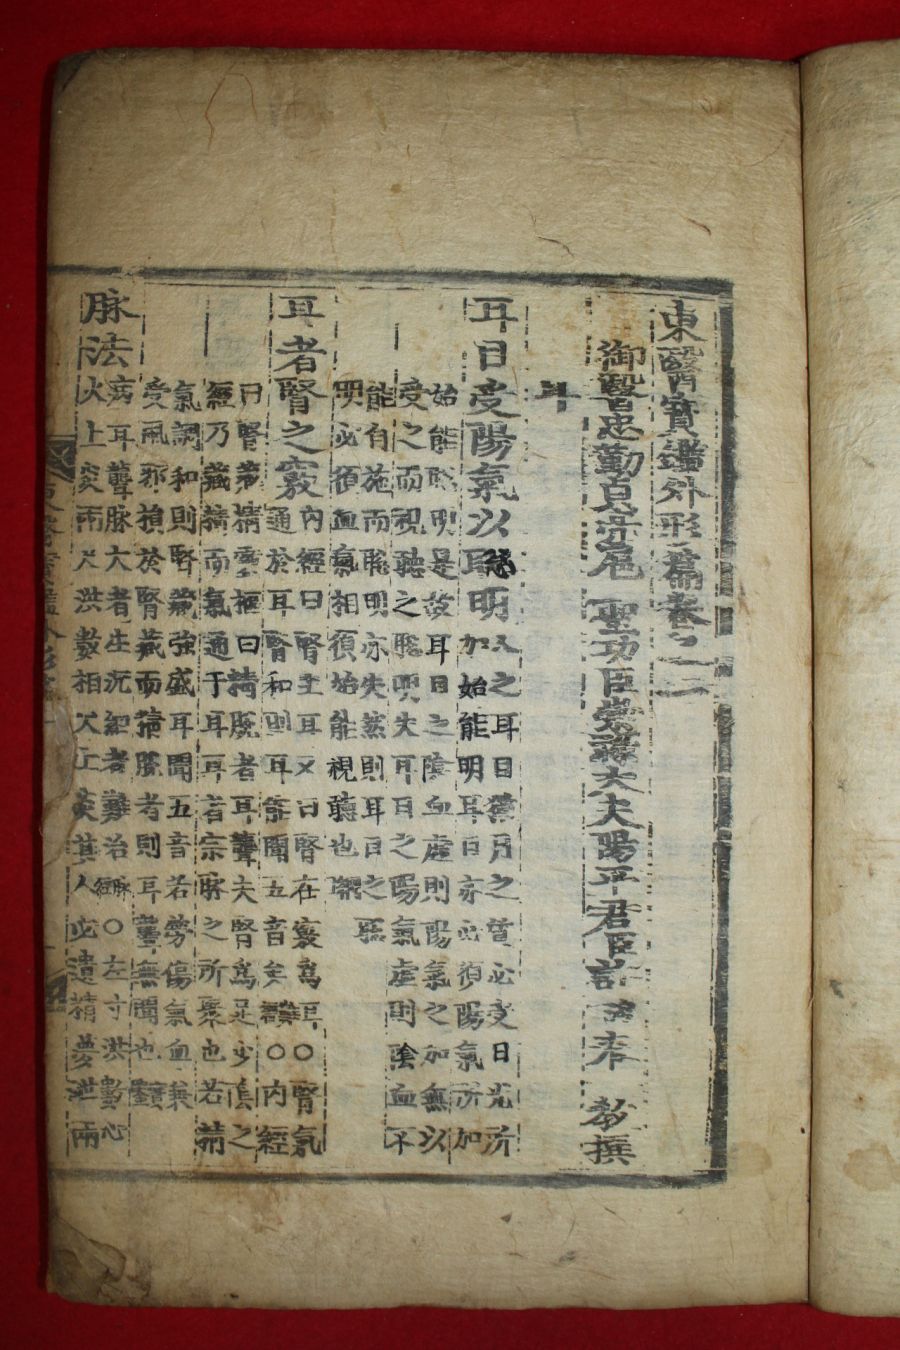 東醫寶鑑外形篇卷之二
御醫忠勤貞亮扈 聖功臣崇祿大夫陽平君臣許浚奉 敎撰
耳
耳目受陽氣以聰明
人之耳目猶月之質必受日光所
加始能明耳目亦必須陽氣所加
始能聰明是故耳目之陰血虛則陽氣之加無以
受之而視聽之聰明失耳目之陽氣虛則陰血不
能自施而聰明亦失然則耳目之聰
明必須血氣相須始能視聽也
耳者腎之竅
內經曰腎主耳又曰腎在竅爲耳○腎氣
通於耳腎和則耳能聞五音矣難經○內經
曰腎藏精靈樞曰精脫者耳聾夫腎爲足少陰之
經乃藏精而氣通于耳耳者宗脉之所聚也若精
氣調和則腎藏強盛耳聞五音若勞傷氣血兼
受風邪損於腎藏而精脫者則耳聾無聞也
脉法
病耳聾脉大者生沉細者難治脉經○左寸洪數心
火上炎兩尺洪數相火上炎其人必遺精夢泄兩
東醫寶鑑外形篇